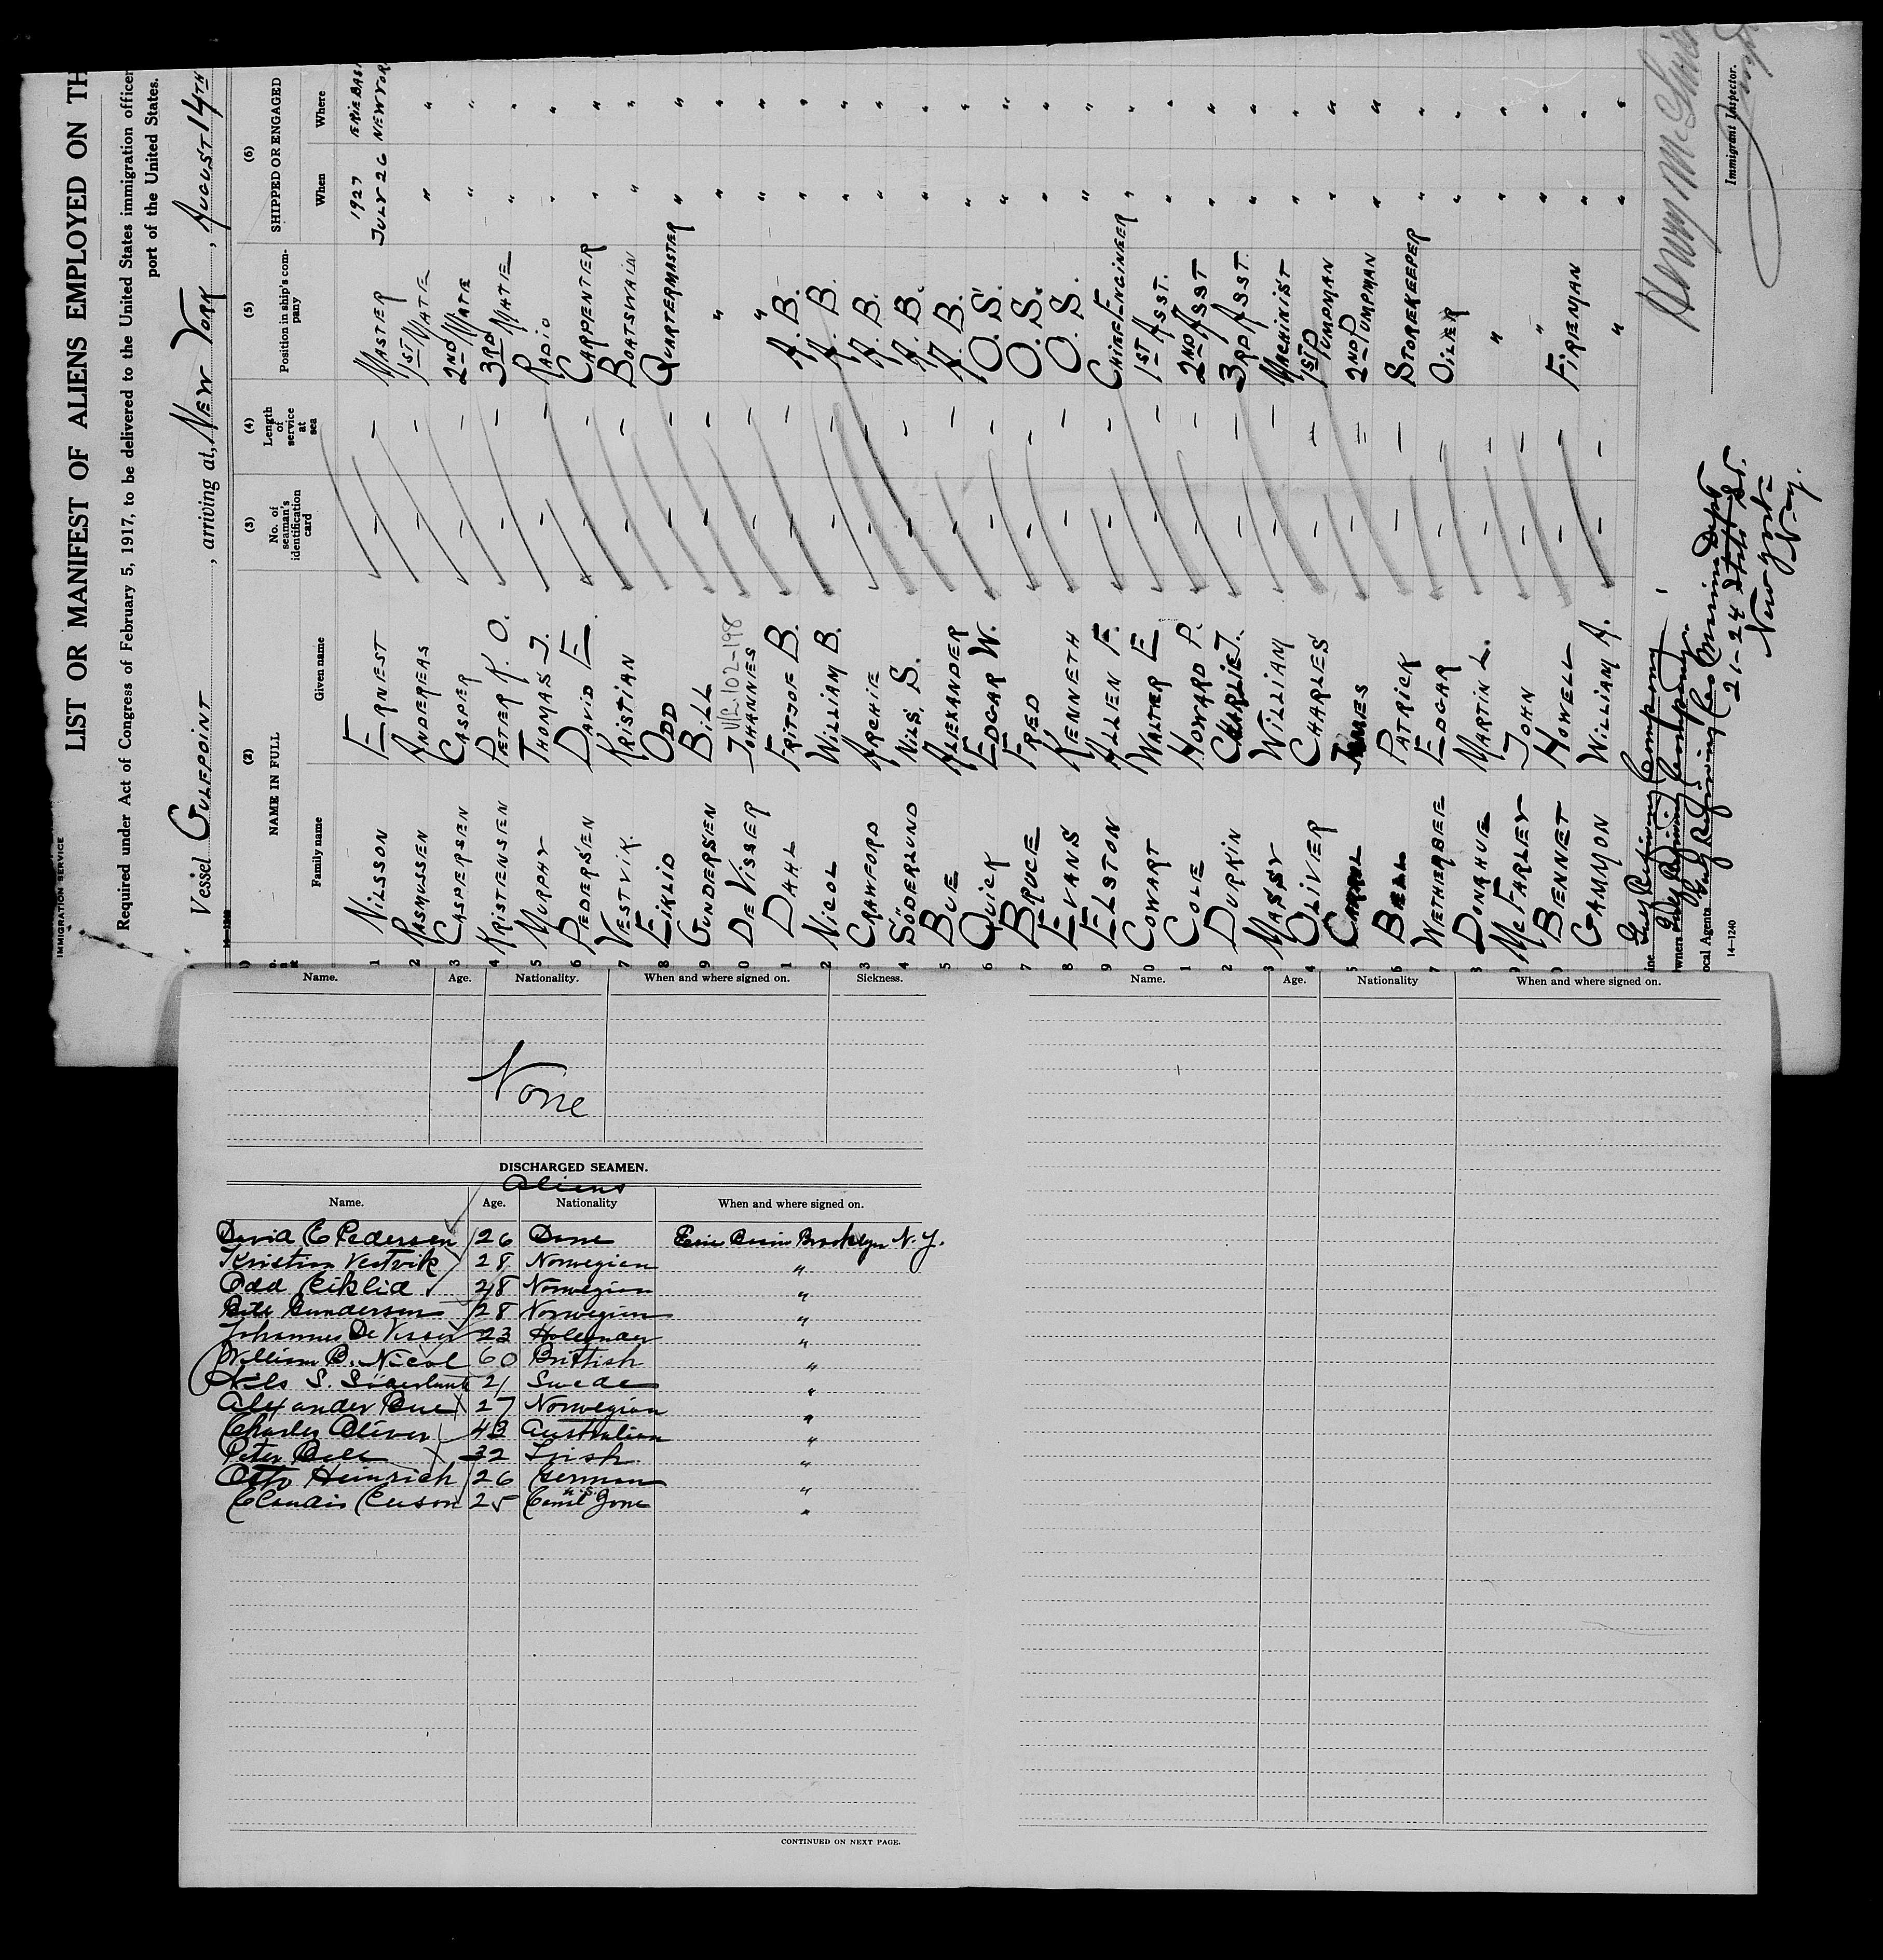 IMMIGRATION SERVICE
LIST OR MANIFEST OF ALIENS EMPLOYED ON TH
Required under Act of Congress of February 5, 1917, to be delivered to the United States immigration officer
port of the United States.
Vessel GULFPOINT, arriving at, NEW YORK, AUGUST 14TH
(2) (3) (4) (5) (6)
NAME IN FULL No. of seaman's identification card Length of service at sea Position in ship's company SHIPPED OR ENGAGED
Family name Given name When Where
1927 ERIE BAS
1 NILSSON ERNEST — — MASTER JULY 26 NEW YOR
2 RASMUSSEN ANDEREAS — — 1ST MATE " "
3 CASPERSEN CASPER — — 2ND MATE " "
4 KRISTENSEN PETER K. O. — — 3RD MATE " "
5 MURPHY THOMAS J. — — RADIO " "
6 PEDERSEN DAVID E. — — CARPENTER " "
7 VESTVIK KRISTIAN — — BOATSWAIN " "
8 EIKLID ODD — — QUARTERMASTER " "
9 GUNDERSEN BILL — — " " "
0 DE VISSER JOHANNES — — " " "
1 DAHL FRITJOF B. — — A. B. " "
2 NICOL WILLIAM B. — — A. B. " "
3 CRAWFORD ARCHIE — — A. B. " "
4 SÖDERLUND NILS. S. — — A. B. " "
5 BUE ALEXANDER — — A. B. " "
6 QUICK EDGAR W. — — O. S. " "
7 BRUCE FRED — — O. S. " "
8 EVANS KENNETH — — O. S. " "
9 ELSTON ALLEN F. — — CHIEF ENGINEER " "
0 COWART WALTER E — — 1ST ASST. " "
1 COLE HOWARD P. — — 2ND ASST " "
2 DURKIN CHARLIE J. — — 3RD ASST. " "
3 MASSY WILLIAM — — MACHINIST " "
4 OLIVER CHARLES — — 1ST PUMPMAN " "
5 JAMES — — 2ND PUMPMAN " "
6 BELL PATRICK — — STOREKEEPER " "
7 WETHERBEE EDGAR — — OILER " "
8 DONAHUE MARTIN L. — — " " "
9 MCFARLEY JOHN — — " " "
BENNET HOWELL — — FIREMAN " "
GAMMON WILLIAM A. — — " " "
ine Gulf Refining Company
wners Gulf Refining Company
ocal Agents Gulf Refining Co Marine Dept
21-24 State St.
New York
N.y.
14—1240
Immigrant Inspector.
Name. Age. Nationality. When and where signed on. Sickness.
None
DISCHARGED SEAMEN.
Aliens
Name. Age. Nationality When and where signed on.
David E Pedersen 26 Dane Erie Basin Brooklyn N.Y.
Kristian Vestvik 28 Norwegian "
Odd Eiklid 28 Norwegian "
Bill Gundersen 28 Norwegian "
Johannes De Visser 23 Hollander "
William B. Nicol 60 Brittish "
Nils S. Söderlund 21 Swede "
Alexander Bue 27 Norwegian "
Charles Oliver 43 Australian "
Peter Bell 32 Irish "
Otto Heinrich 26 German "
25 "
CONTINUED ON NEXT PAGE.
Name. Age. Nationality When and where signed on.